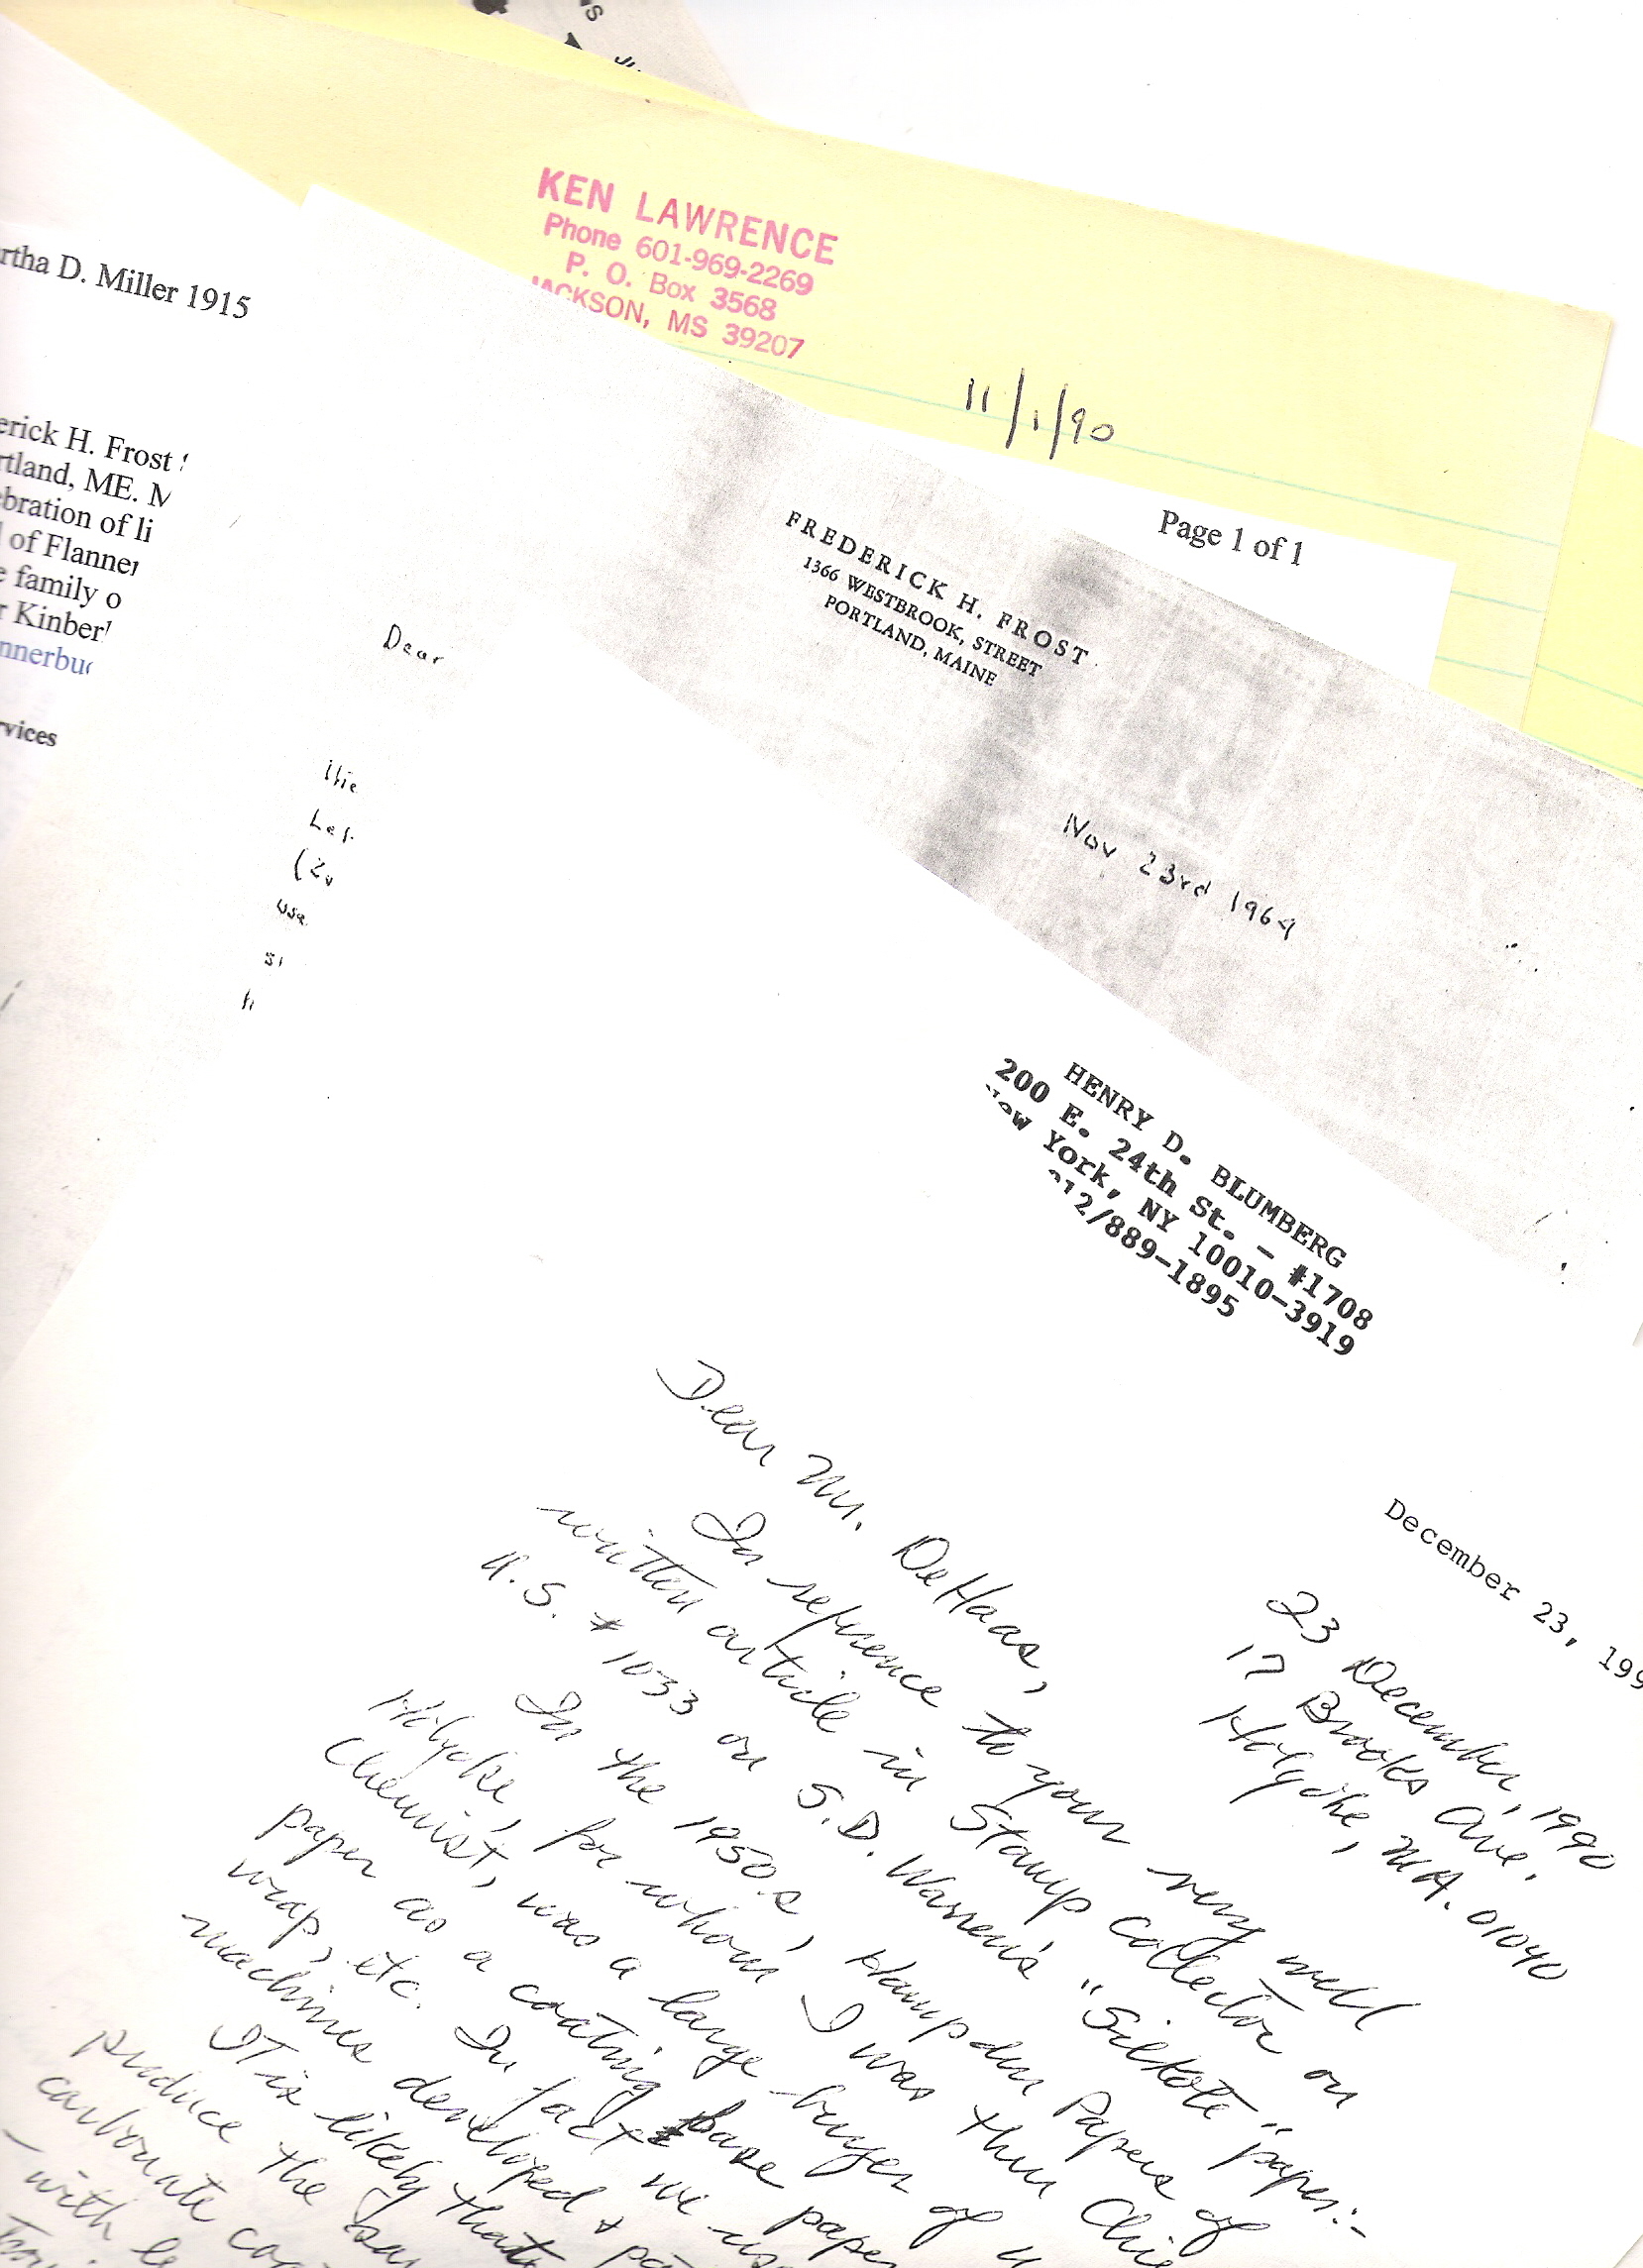 KEN LAWRENCE
Phone 601-969-2269
P. O. Box 3568
JACKSON, MS 39207
11/1/90
rtha D. Miller 1915
erick H. Frost
rtland, ME. M
bration of li
of Flanner
family o
r Kinber
nnerbu
vices
Page 1 of 1
FREDERICK H. FROST
1366 WESTBROOK, STREET
PORTLAND, MAINE
Nov 23rd 1964
Dear
the
Let
(2
use
si
h
HENRY D. BLUMBERG
200 E. 24th St. - #1708
New York, NY 10010-3919
212/889-1895
December 23, 199
23 December, 1990
17 Brooks Ave.
Holyoke, MA. 01040
Dear Mr. DeHaas,
In reference to your very well
written article in Stamp Collector on
U.S. #1033 on S.D. Warren's "Silkote" paper:-
In the 1950s, Hampden Papers of
Holyoke, for whom I was then Chie
Chemist, was a large buyer of
paper as a coating base
wrap, etc. In fact we us
machines developed &
IT is likely that paper
produce the
carbonate
with le